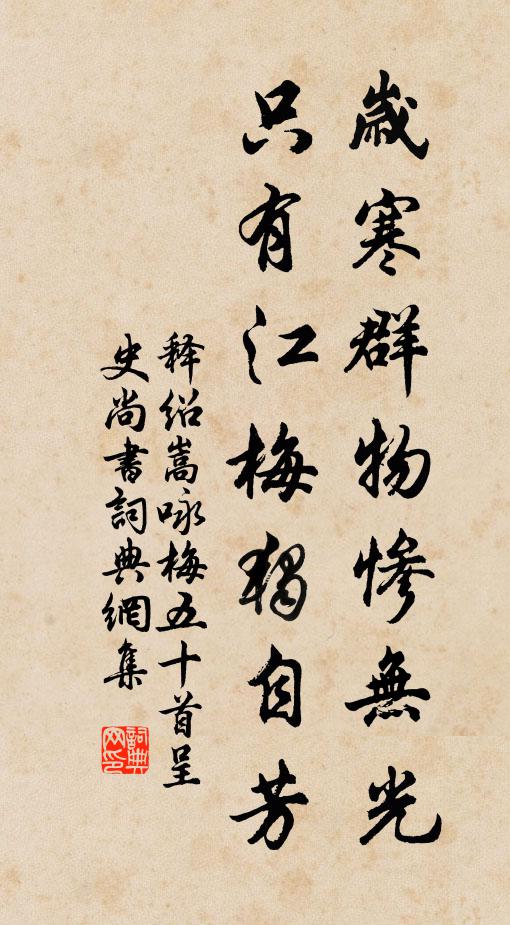 歲寒群物慘無光
只有江梅獨自芳
释绍嵩咏梅五十首呈
史尚書詞典網集
詞典
网印